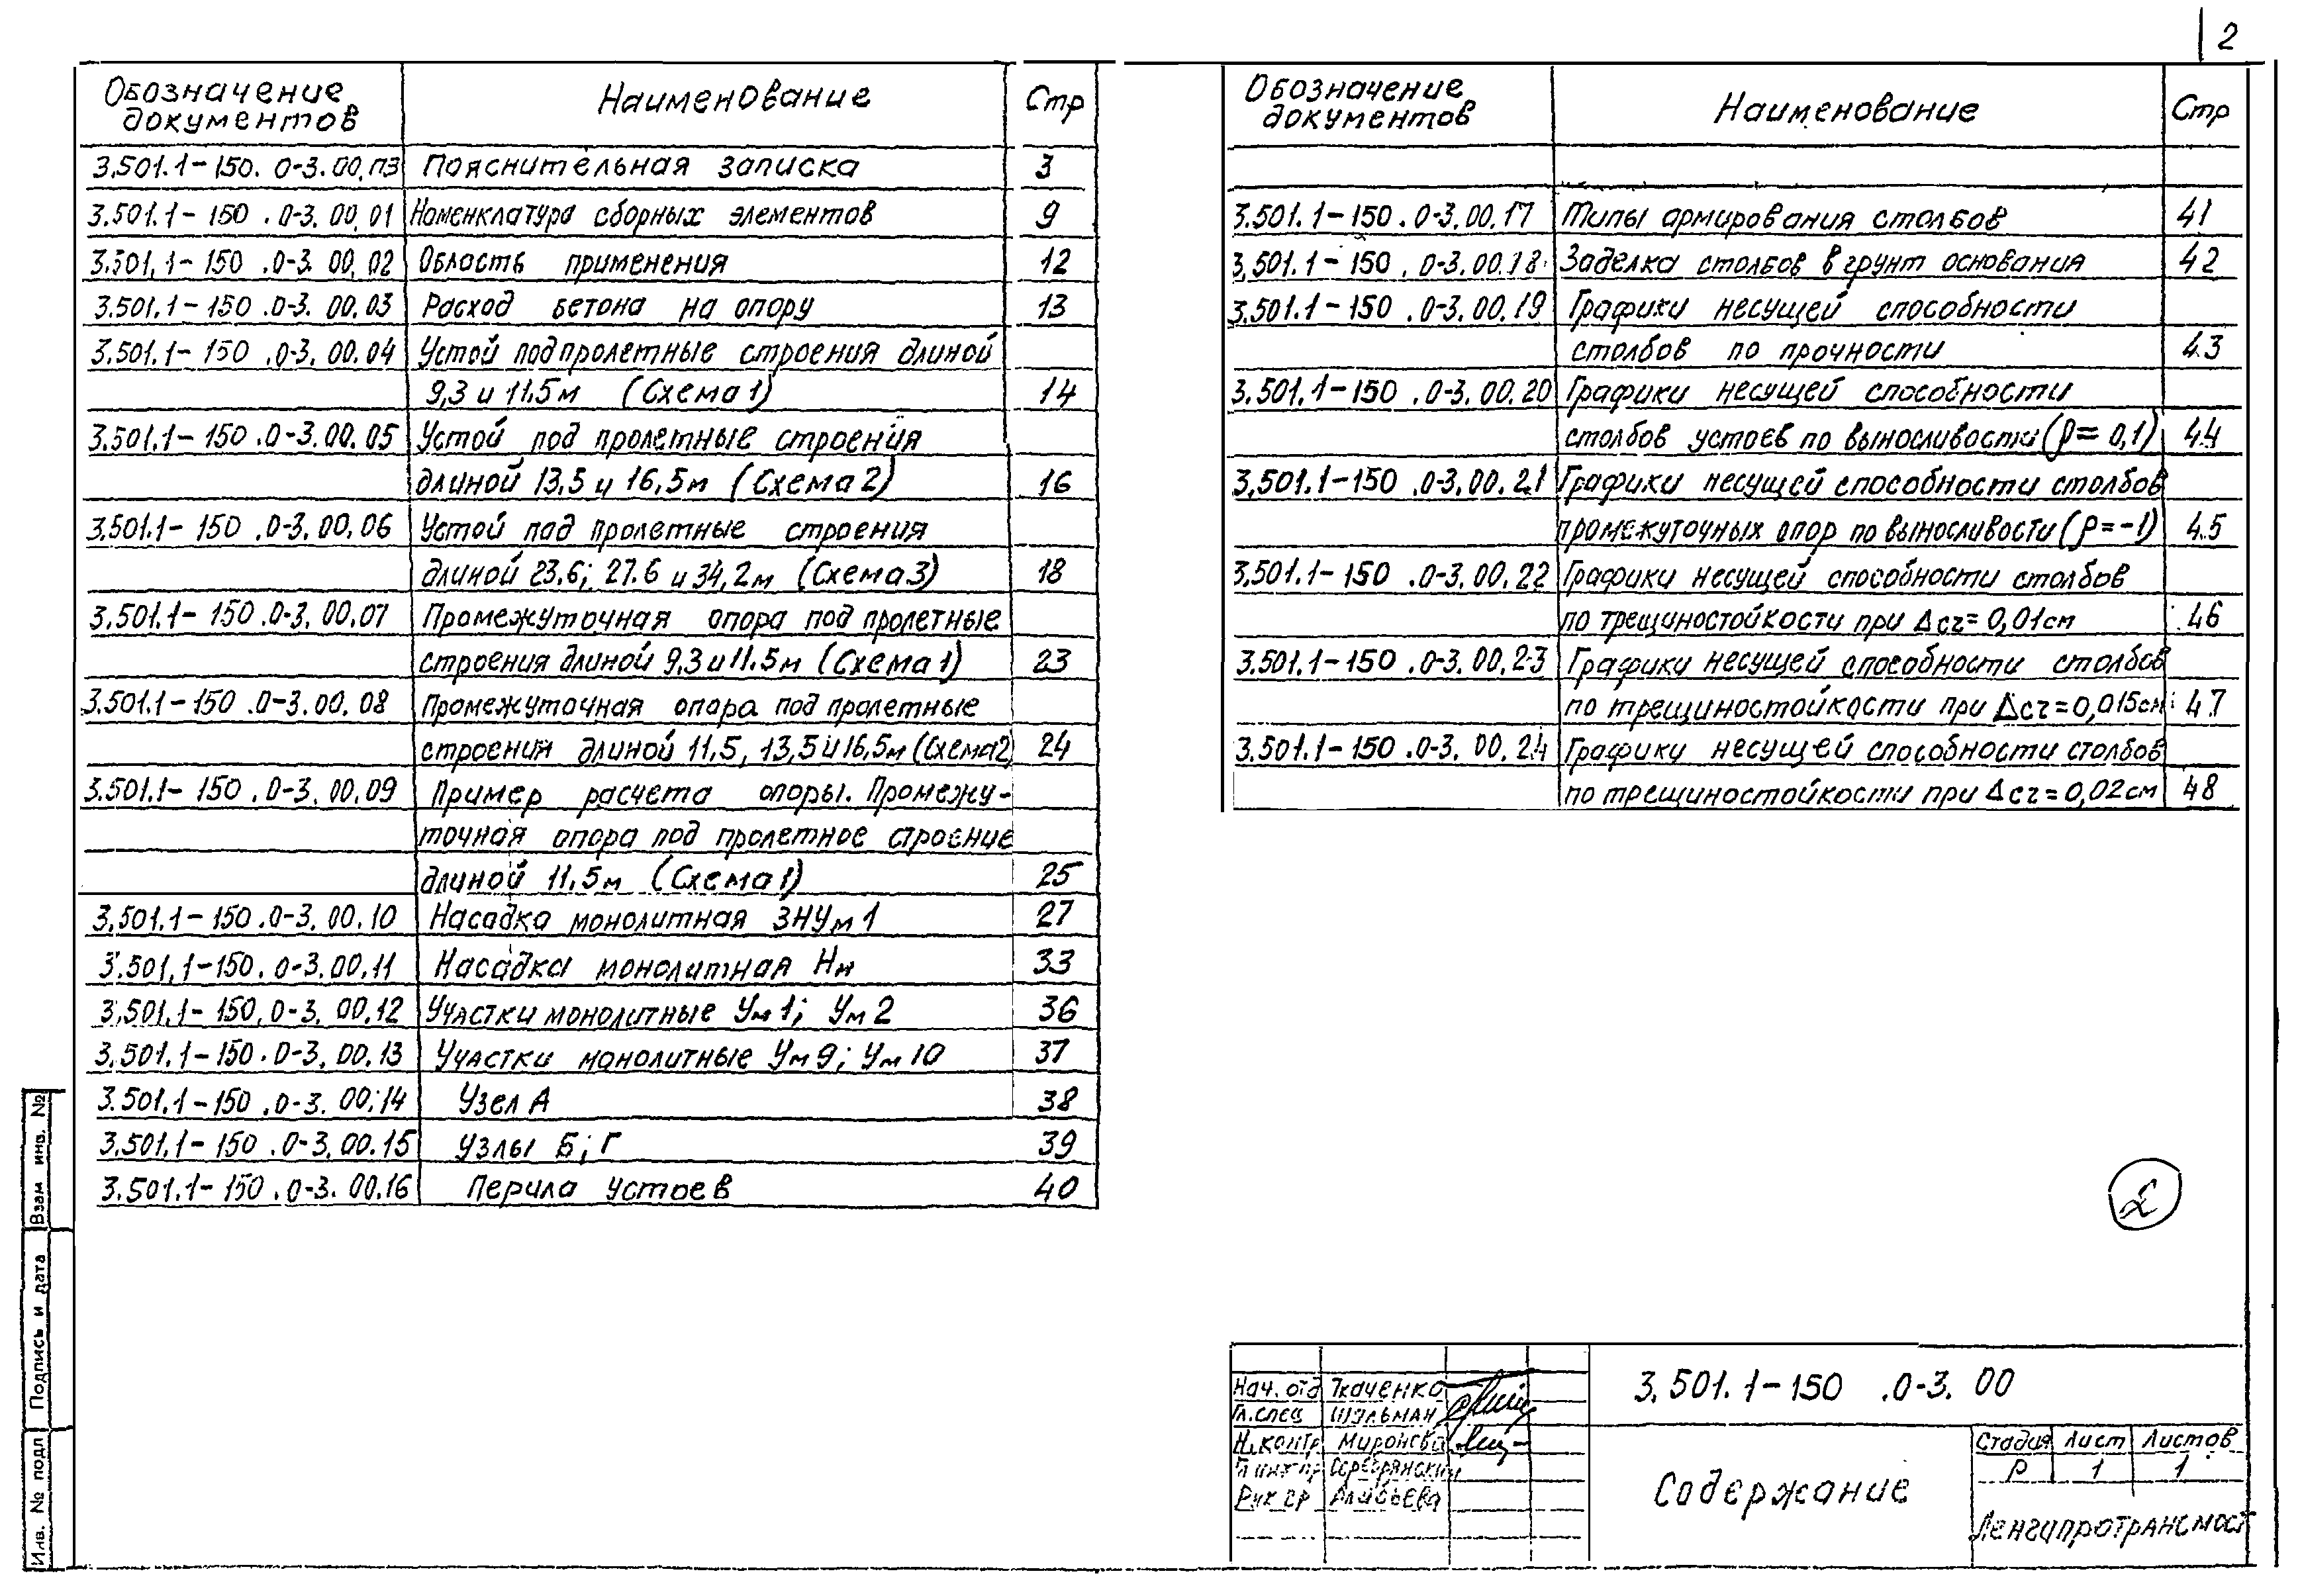 2
Обозначение документов Наименование Стр
3.501.1-150.0-3.00.ПЗ Пояснительная записка 3
3.501.1-150.0-3.00.01 Номенклатура сборных элементов 9
3.501.1-150.0-3.00.02 Область применения 12
3.501.1-150.0-3.00.03 Расход бетона на опору 13
3.501.1-150.0-3.00.04 Устой под пролетные строения длиной
9,3 и 11.5м (Схема 1) 14
3.501.1-150.0-3.00.05 Устой под пролетные строения
длиной 13.5 и 16,5м (Схема 2) 16
3.501.1-150.0-3.00.06 Устой под пролетные строения
длиной 23.6; 27.6 и 34,2м (Схема 3) 18
3.501.1-150.0-3.00.07 Промежуточная опора под пролетные
строения длиной 9,3 и 11.5м (Схема 1) 23
3.501.1-150.0-3.00.08 Промежуточная опора под пролетные
строения длиной 11,5, 13,5 и 16,5м (Схема 2) 24
3.501.1-150.0-3.00.09 Пример расчета опоры. Промежу-
точная опора под пролетное строение
длиной 11.5м (Схема 1) 25
3.501.1-150.0-3.00.10 Насадка монолитная 3НУм1 27
3.501.1-150.0-3.00.11 Насадка монолитная Нм 33
3.501.1-150.0-3.00.12 Участки монолитные Ум1; Ум2 36
3.501.1-150.0-3.00.13 Участки монолитные Ум9; Ум10 37
3.501.1-150.0-3.00.14 Узел А 38
3.501.1-150.0-3.00.15 Узлы Б; Г 39
3.501.1-150.0-3.00.16 Перила устоев 40
Обозначение документов Наименование Стр
3.501.1-150.0-3.00.17 Типы армирования столбов 41
3.501.1-150.0-3.00.18 Заделка столбов в грунт основания 42
3.501.1-150.0-3.00.19 Графики несущей способности
столбов по прочности 43
3.501.1-150.0-3.00.20 Графики несущей способности
столбов устоев по выносливости (ρ= 0,1) 44
3.501.1-150.0-3.00.21 Графики несущей способности столбов
промежуточных опор по выносливости (ρ=-1) 45
3.501.1-150.0-3.00.22 Графики несущей способности столбов
по трещиностойкости при Δcr= 0,01см 46
3.501.1-150.0-3.00.23 Графики несущей способности столбов
по трещиностойкости при Δcr=0,015см 47
3.501.1-150.0-3.00.24 Графики несущей способности столбов
по трещиностойкости при Δcr=0,02см 48
Взам инв. №
Подпись и дата
Инв. № подл
Нач. отд Ткаченко
Гл.спец Шульман
Н.контр Миронова
Гл инж пр Серебрянский
Рук гр Алябьева
3.501.1-150.0-3.00
Содержание
Стадия Лист Листов
Р 1 1
Ленгипротрансмост